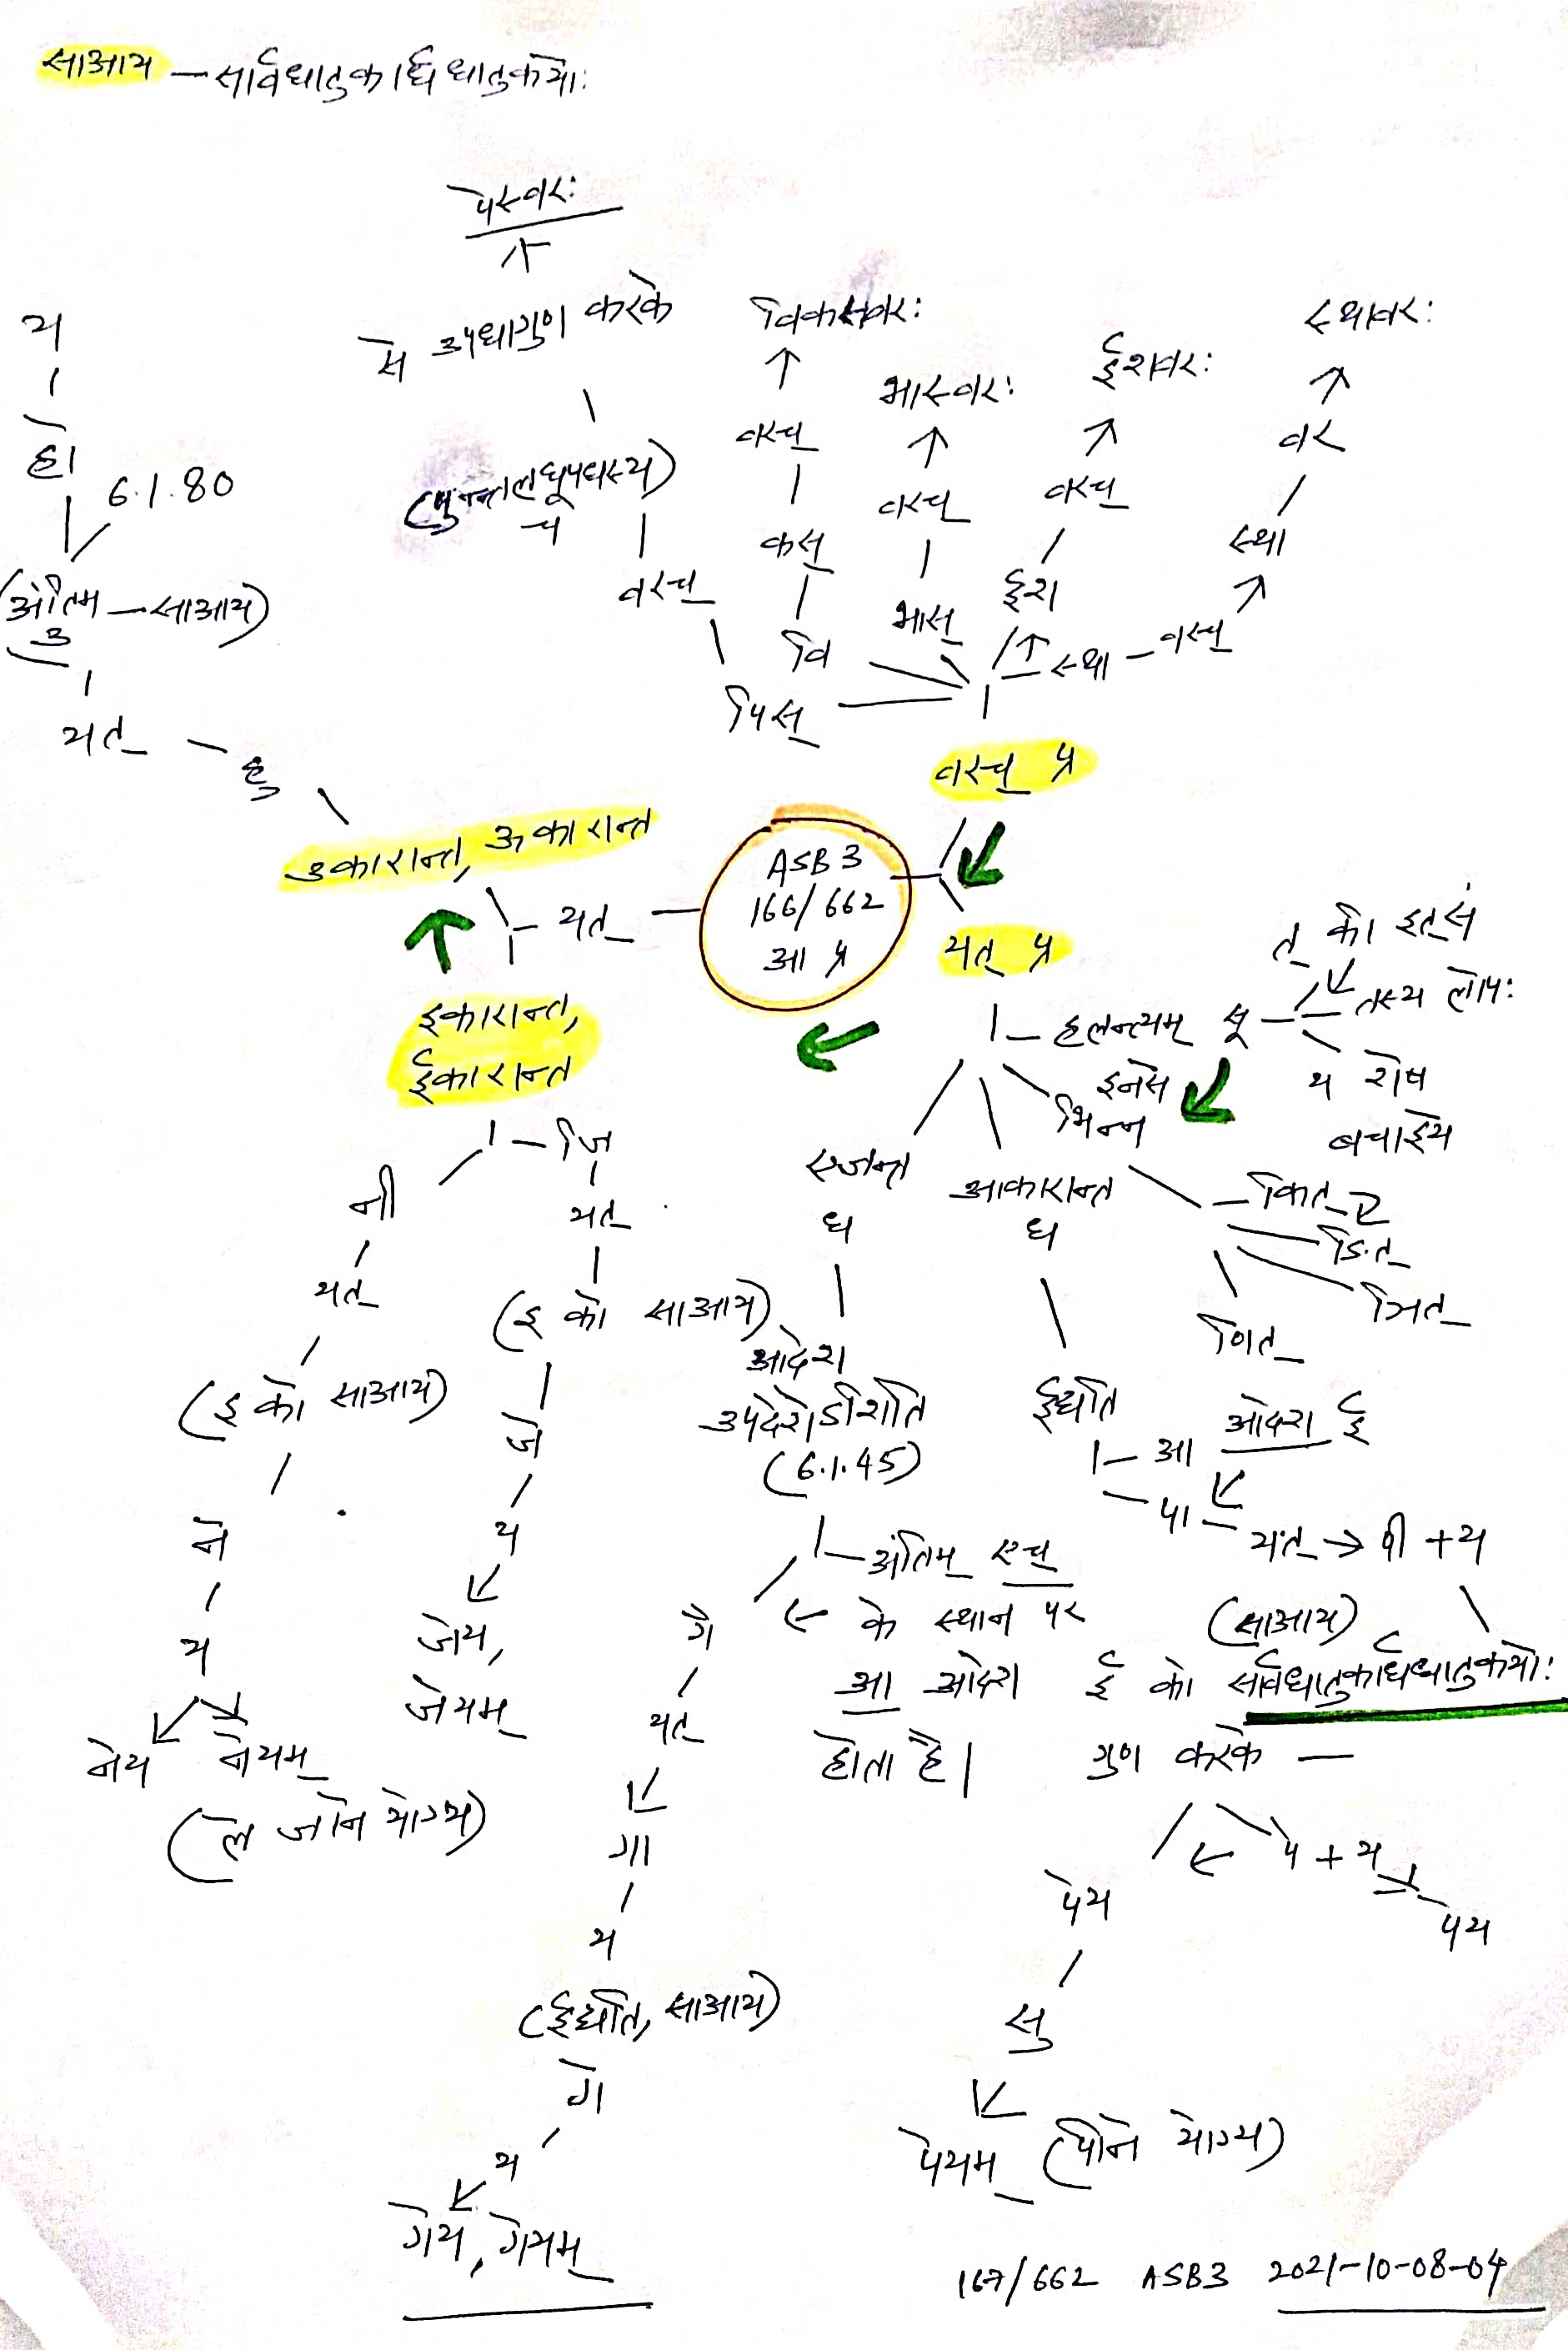 साआय — सार्वधातुकार्धधातुकयोः
पेस्वरः
से उपधागुण करके
(पुगन्तलघूपधस्य)
च
वरच्
पिस्
विकस्वरः
वरच्
कस्
वि
भास्वरः
वरच्
भास्
ईश्वरः
वरच्
ईश
स्थावरः
वर
स्था
स्था — वरच्
वरच् प्र
य
हो
6.1.80
(अंतिम — साआय)
उ
यत्
हु
उकारान्त, ऊकारान्त
यत्
ASB3
166/662
आ प्र
यत् प्र
इकारान्त,
ईकारान्त
हलन्त्यम् सू
त् की इत्सं
तस्य लोपः
य शेष
बचाईये
इनसे
भिन्न
कित्
ङित्
ञित्
णित्
एजन्त
ध
आदेश
उपदेशेऽशिति
(6.1.45)
अंतिम एच्
के स्थान पर
आ आदेश
होता है।
आकारान्त
ध
ईद्यति
आ आदेश ई
पा
यत् → पी + य
(साआय)
ई को सार्वधातुकार्धधातुकयोः
गुण करके —
पे + य
पेय
पेय
सु
पेयम् (पीने योग्य)
जि
यत्
(इ को साआय)
जे
य
जेय,
जेयम्
नी
यत्
(इ को साआय)
ने
य
नेय नेयम्
(ले जाने योग्य)
गै
यत्
गा
य
(ईद्यति, साआय)
गे
य
गेय, गेयम्
167/662 ASB3 2021-10-08-04